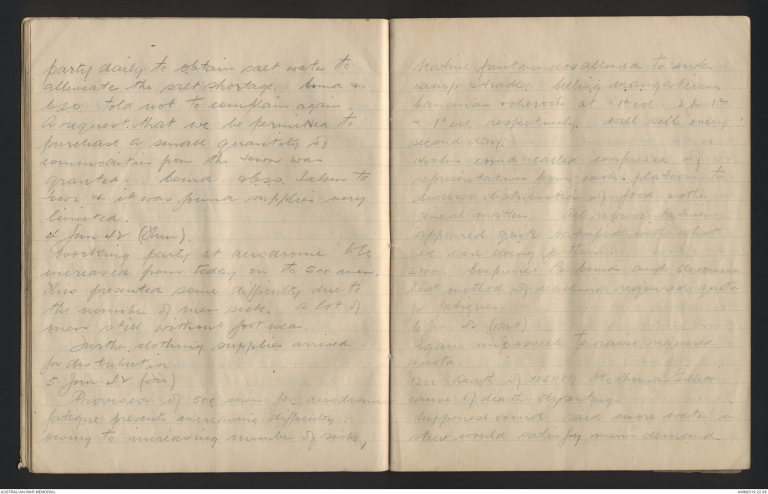 party daily to obtain salt water to
alleviate the salt shortage. Comd &
told not to complain again.
A request that we be permitted to
purchase a small quantity of
commodities from the town was
granted. Comd taken to
town & it was found supplies very
limited.
4 Jun 42 (Thur).
Working party at aerodrome to be
increased from today on to 500 men.
This presented some difficulty due to
the number of men sick. A lot of
men still without foot wear.
Further clothing supplies arrived
for distribution.
5 Jun 42 (Fri)
Provision of 500 men for aerodrome
fatigue presents increasing difficulty
owing to increasing number of sick,
Native fruit vendors allowed to enter
camp & trade. Selling mangosteens
bananas & cheroots at
& respectively. Will sell every
second day.
Comd called conference of
representatives from each platoon to
discuss distribution of food & other
general matters. All representatives
appeared quite satisfied with what
we were doing for them.
2100 Conference and discussion
best method of reaching required quota
for fatigues.
6 Jun 42 (Sat)
Again impossible to raise required
quota.
1200 Death of Pte
cause of death dysentery.
Japanese comd said more water in
stew would satisfy mens demand
AUSTRALIAN WAR MEMORIAL